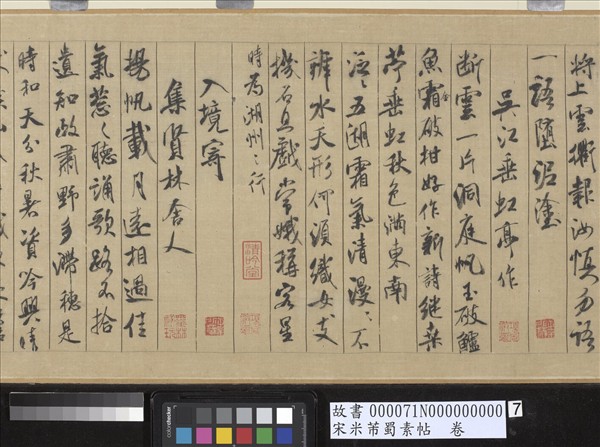 將上雲衢報汝慎勿語
一語墮泥塗
吳江垂虹亭作
断雲一片洞庭帆玉破鱸
魚霜破柑好作新詩継桑
苧垂虹秋色満東南
泛〻五湖霜氣清漫〻不
辨水天形何須織女支
機石且戲常娥稱客星
時為湖州之行
入境寄
集賢林舍人
揚帆載月遠相過佳
氣葱〻聽誦歌路不拾
遺知政肅野多滯穗是
時和天分秋暑資吟興晴
colorchecker
故書 000071N000000000
宋米芾蜀素帖 卷
7